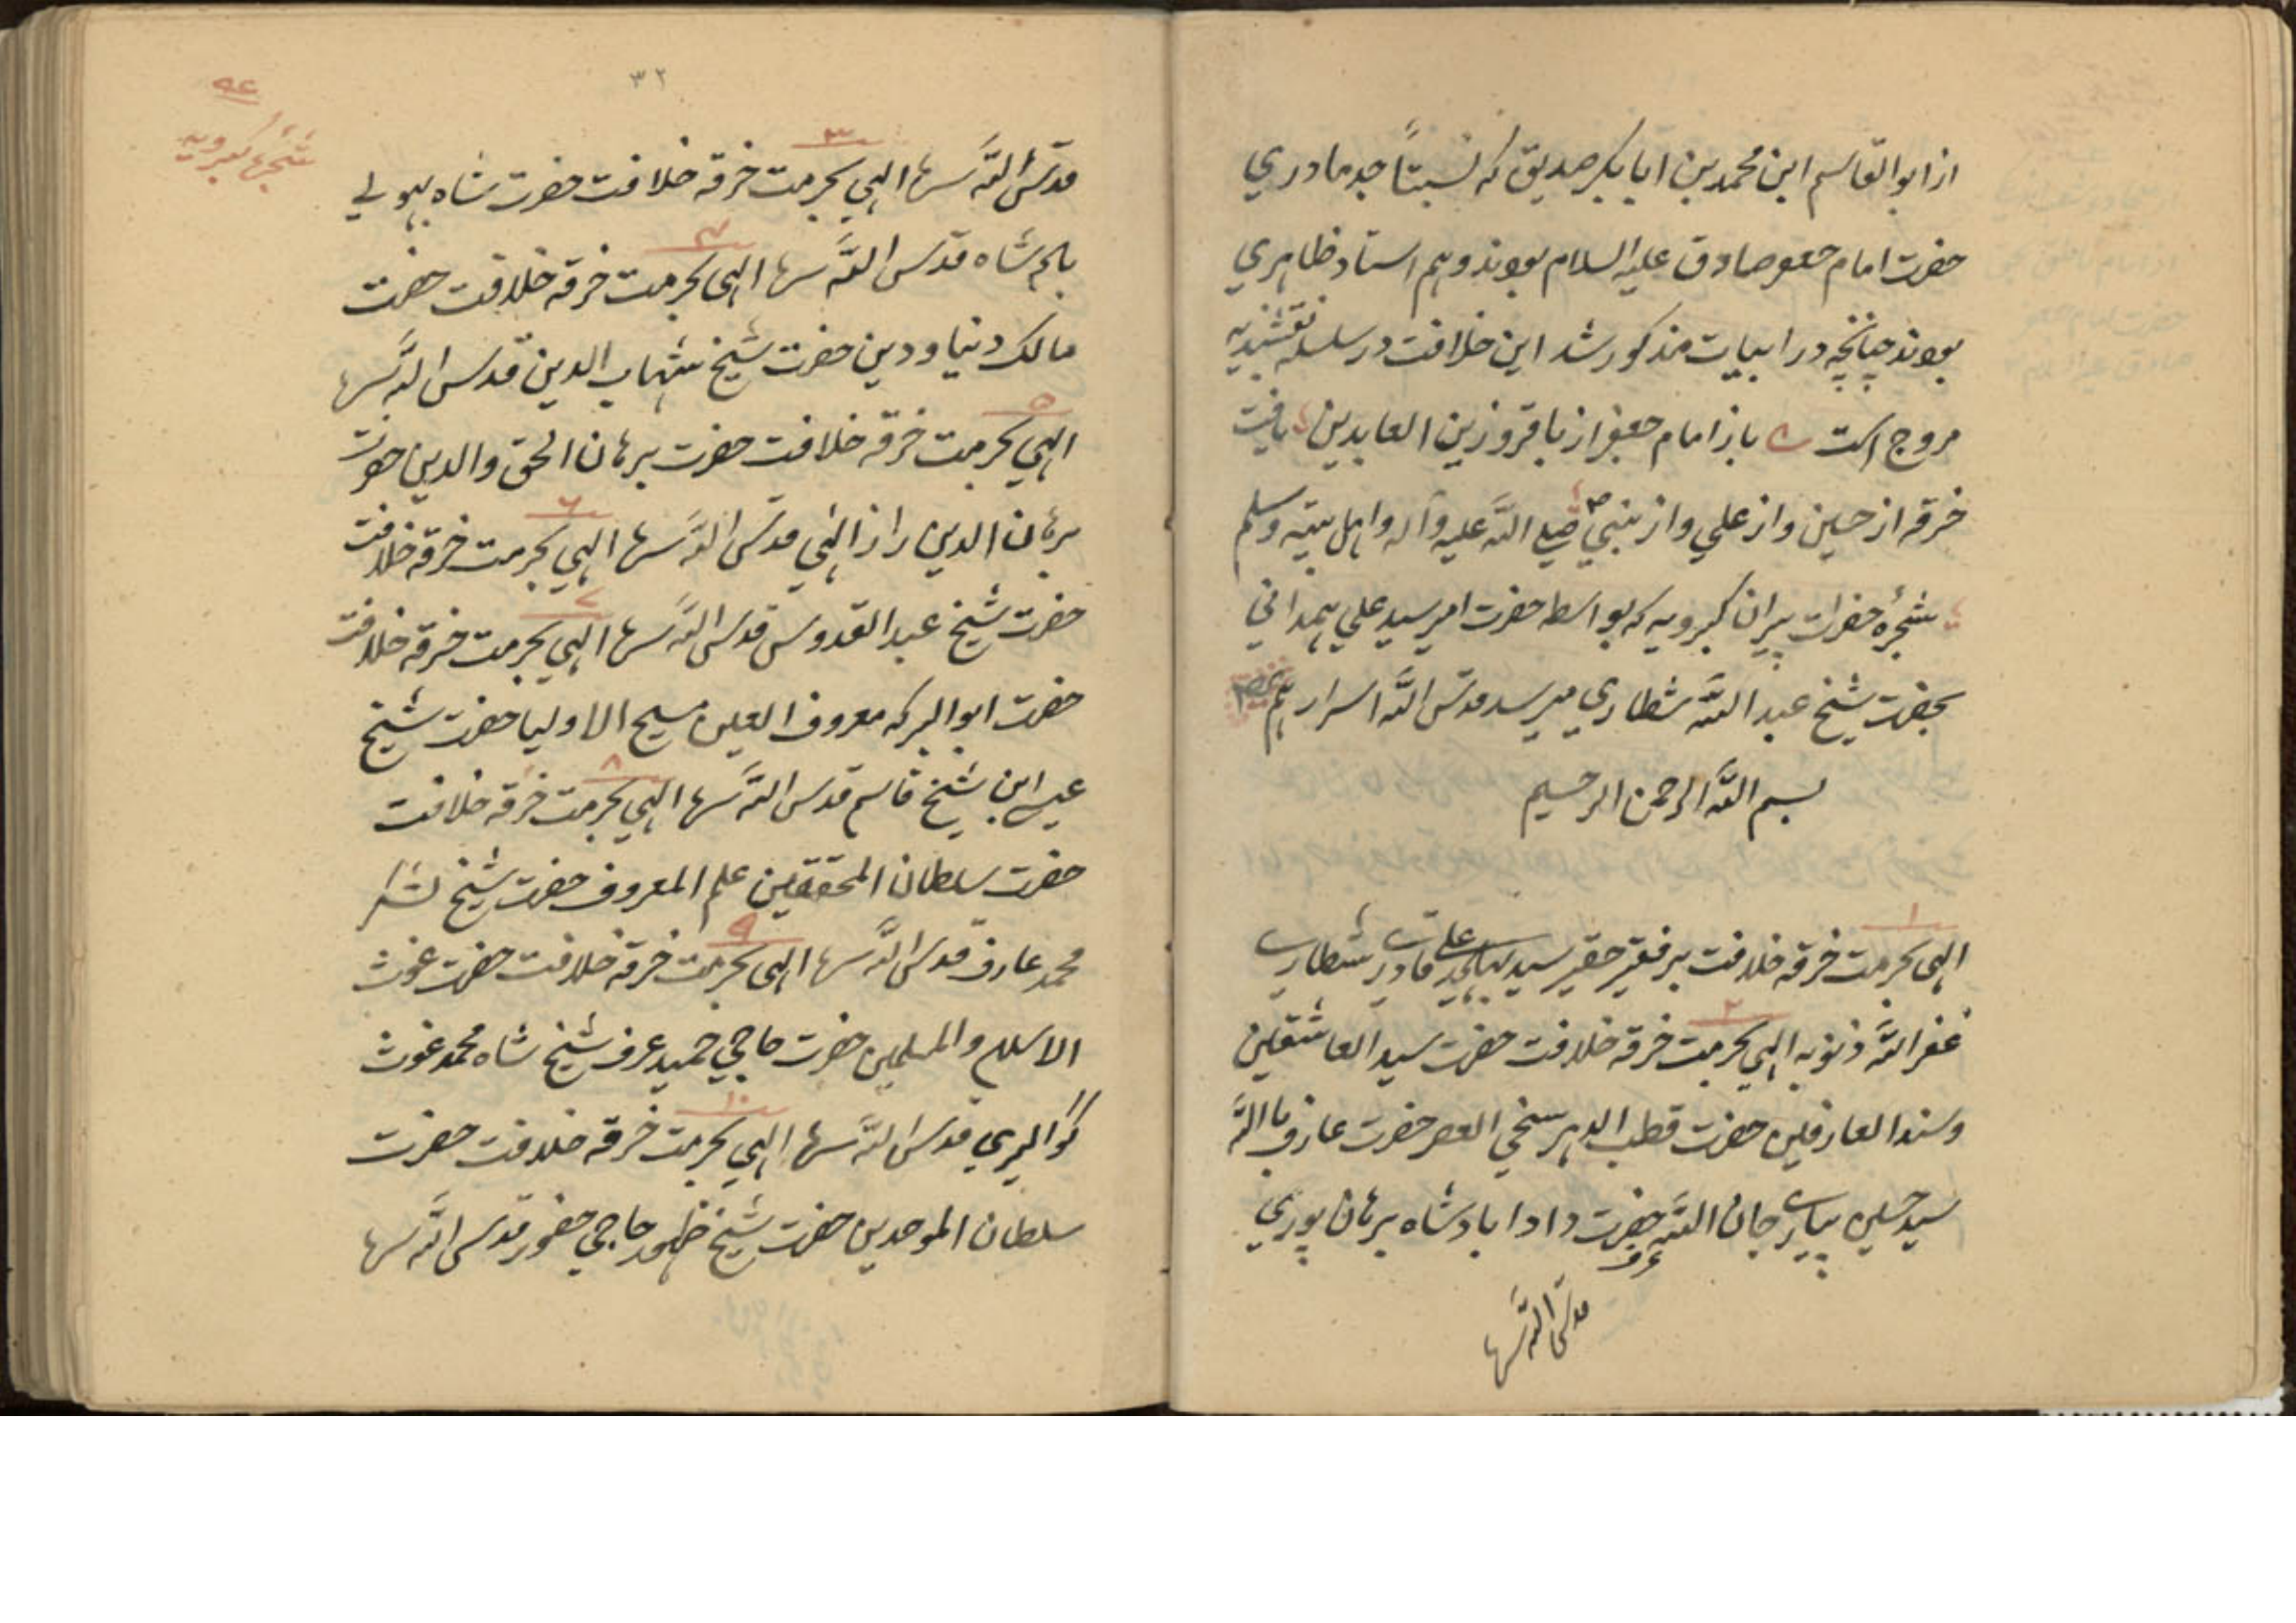 از ابوالقاسم ابن محمد بن ابابکر صدیق که نسبتاً جد مادري
حضرت امام جعفر صادق علیه السلام بودند و هم استاد ظاهري
بودند چنانچه در ابیات مذکور شد این خلافت در سلسله نقشبندیه
مروج است باز امام جعفر از باقر و زین العابدین یافت
خرقه از حسین و از علي و از نبي صلي اللّه علیه و آله و اهل بیته وسلم
شجرهٔ حضرات پیران کبرویه که بواسطه حضرت امیر سید علي همداني
بحضرت شیخ عبد اللّه شطاري میرسد قدس اللّه اسرارهم
بسم اللّه الرحمن الرحیم
۱
الهی بحرمت خرقه خلافت بر فقیر حقیر سید علی قادری شطاری
۲
غفر اللّه ذنوبه الهي بحرمت خرقه خلافت حضرت سید العاشقین
و سند العارفین حضرت قطب الدهر سخي العصر حضرت عارف باللّه
سید حسین پیاری جان اللّه عرف حضرت دادا بادشاه برهان پوري
قدس اللّه سرها
۳۲
۹٤
شجرهٔ کبرویه
۳
قدس اللّه سرها الهي بحرمت خرقه خلافت حضرت شاه
٤
شاه قدس اللّه سرها الهی بحرمت خرقه خلافت حضرت
مالک دنیا و دین حضرت شیخ شهاب الدین قدس اللّه سرها
۵
الهي بحرمت خرقه خلافت حضرت برهان الحق والدین حضرت
٦
برهان الدین راز الهي قدس اللّه سرها الهي بحرمت خرقه خلافت
۷
حضرت شیخ عبد القدوس قدس اللّه سرها الهي بحرمت خرقه خلافت
حضرت ابو البرکه معروف مسیح الاولیا حضرت شیخ
۸
عیسی ابن شیخ قاسم قدس اللّه سرها الهي بحرمت خرقه خلافت
حضرت سلطان المحققین علم المعروف حضرت شیخ لشکر
۹
محمد عارف قدس اللّه سرها الهی بحرمت خرقه خلافت حضرت غوث
الاسلام والمسلمین حضرت حاجي حمید عرف شیخ شاه محمد غوث
۱۰
گوالیري قدس اللّه سرها الهي بحرمت خرقه خلافت حضرت
سلطان الموحدین حضرت شیخ ظهور حاجي حضور قدس اللّه سرها